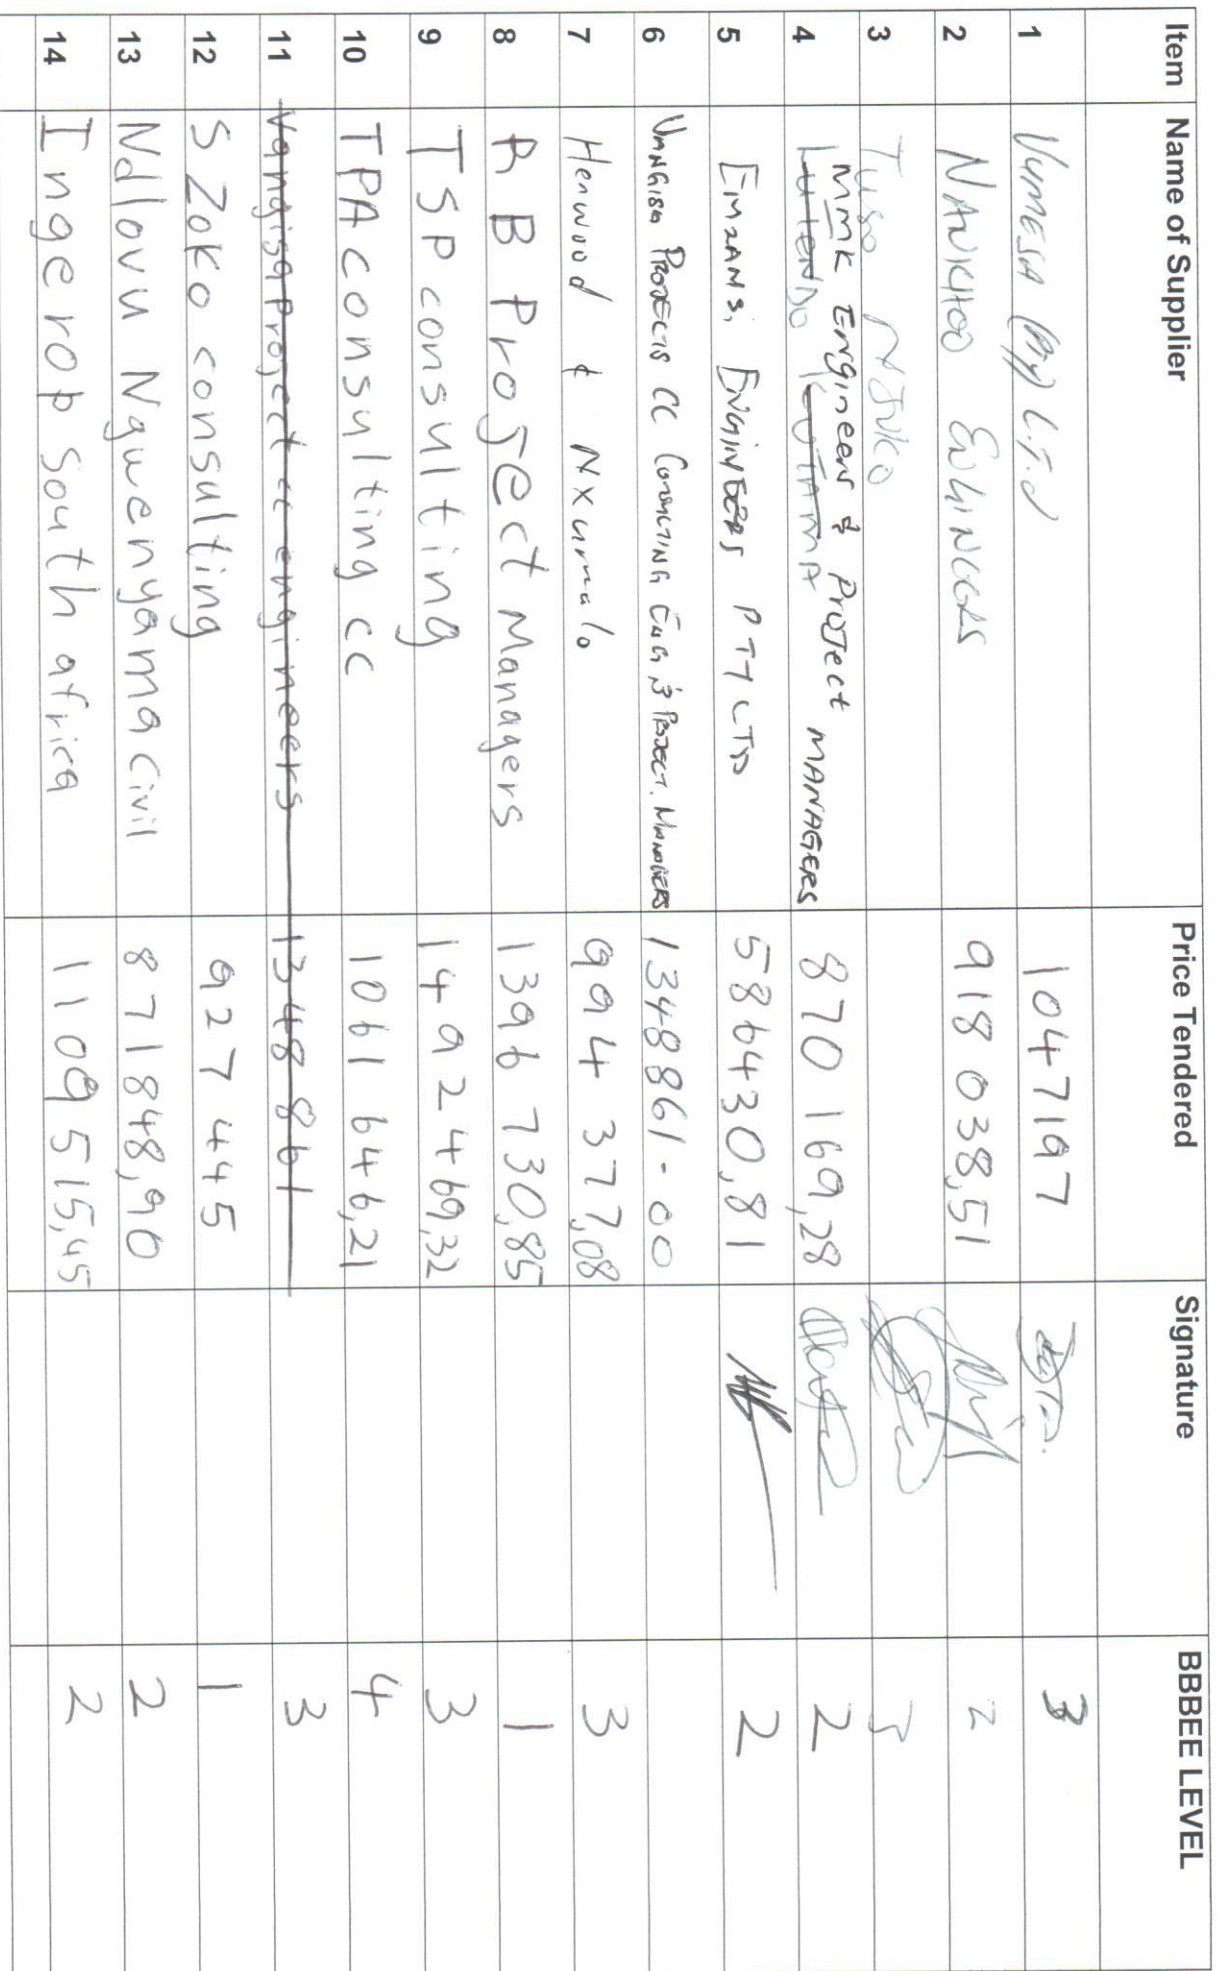 Item Name of Supplier Price Tendered Signature BBBEE LEVEL
1 Vumesa (Pty) L.T.D 1047197 3
2 NANKHOO ENGINEERS 918 038,51 2
3 3
4 MMK Engineers & PROJECT MANAGERS 870 169,28 2
LUTENDO
5 EMZANSI ENGINEERS PTY LTD 586430,81 2
6 VANGISA PROJECTS CC CONSULTING ENG & PROJECT MANAGERS 1348861-00
7 Henwood & Nxumalo 994 377,08 3
8 RB Project Managers 1396 730,85 1
9 TSP consulting 1492469,32 3
10 TPA consulting cc 1061 646,21 4
11 Vangisa Project cc engineers 1348861 3
12 S Zoko consulting 927445 1
13 Ndlovu Nqwenyama Civil 871848,90 2
14 Ingerop South africa 1109515,45 2